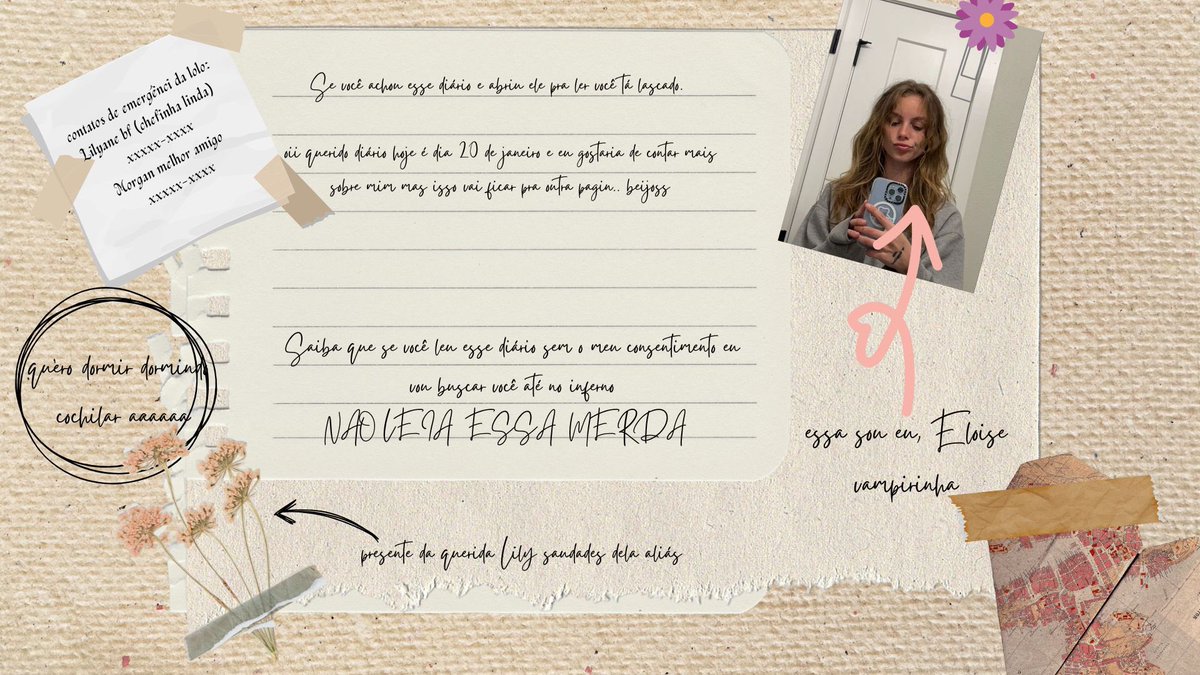 contatos de emergênci da lolo:
Lilyane bf (chefinha linda)
xxxxx-xxxx
Morgan melhor amigo
xxxxx-xxxx
Se você achou esse diário e abriu ele pra ler você tá lascado.
oii querido diário hoje é dia 20 de janeiro e eu gostaria de contar mais
sobre mim mas isso vai ficar pra outra pagin.. beijoss
Saiba que se você leu esse diário sem o meu consentimento eu
vou buscar você até no inferno
NAO LEIA ESSA MERDA
quero dormir dormindo
cochilar aaaaaa
essa sou eu, Eloise
vampirinha
presente da querida Lily saudades dela aliás